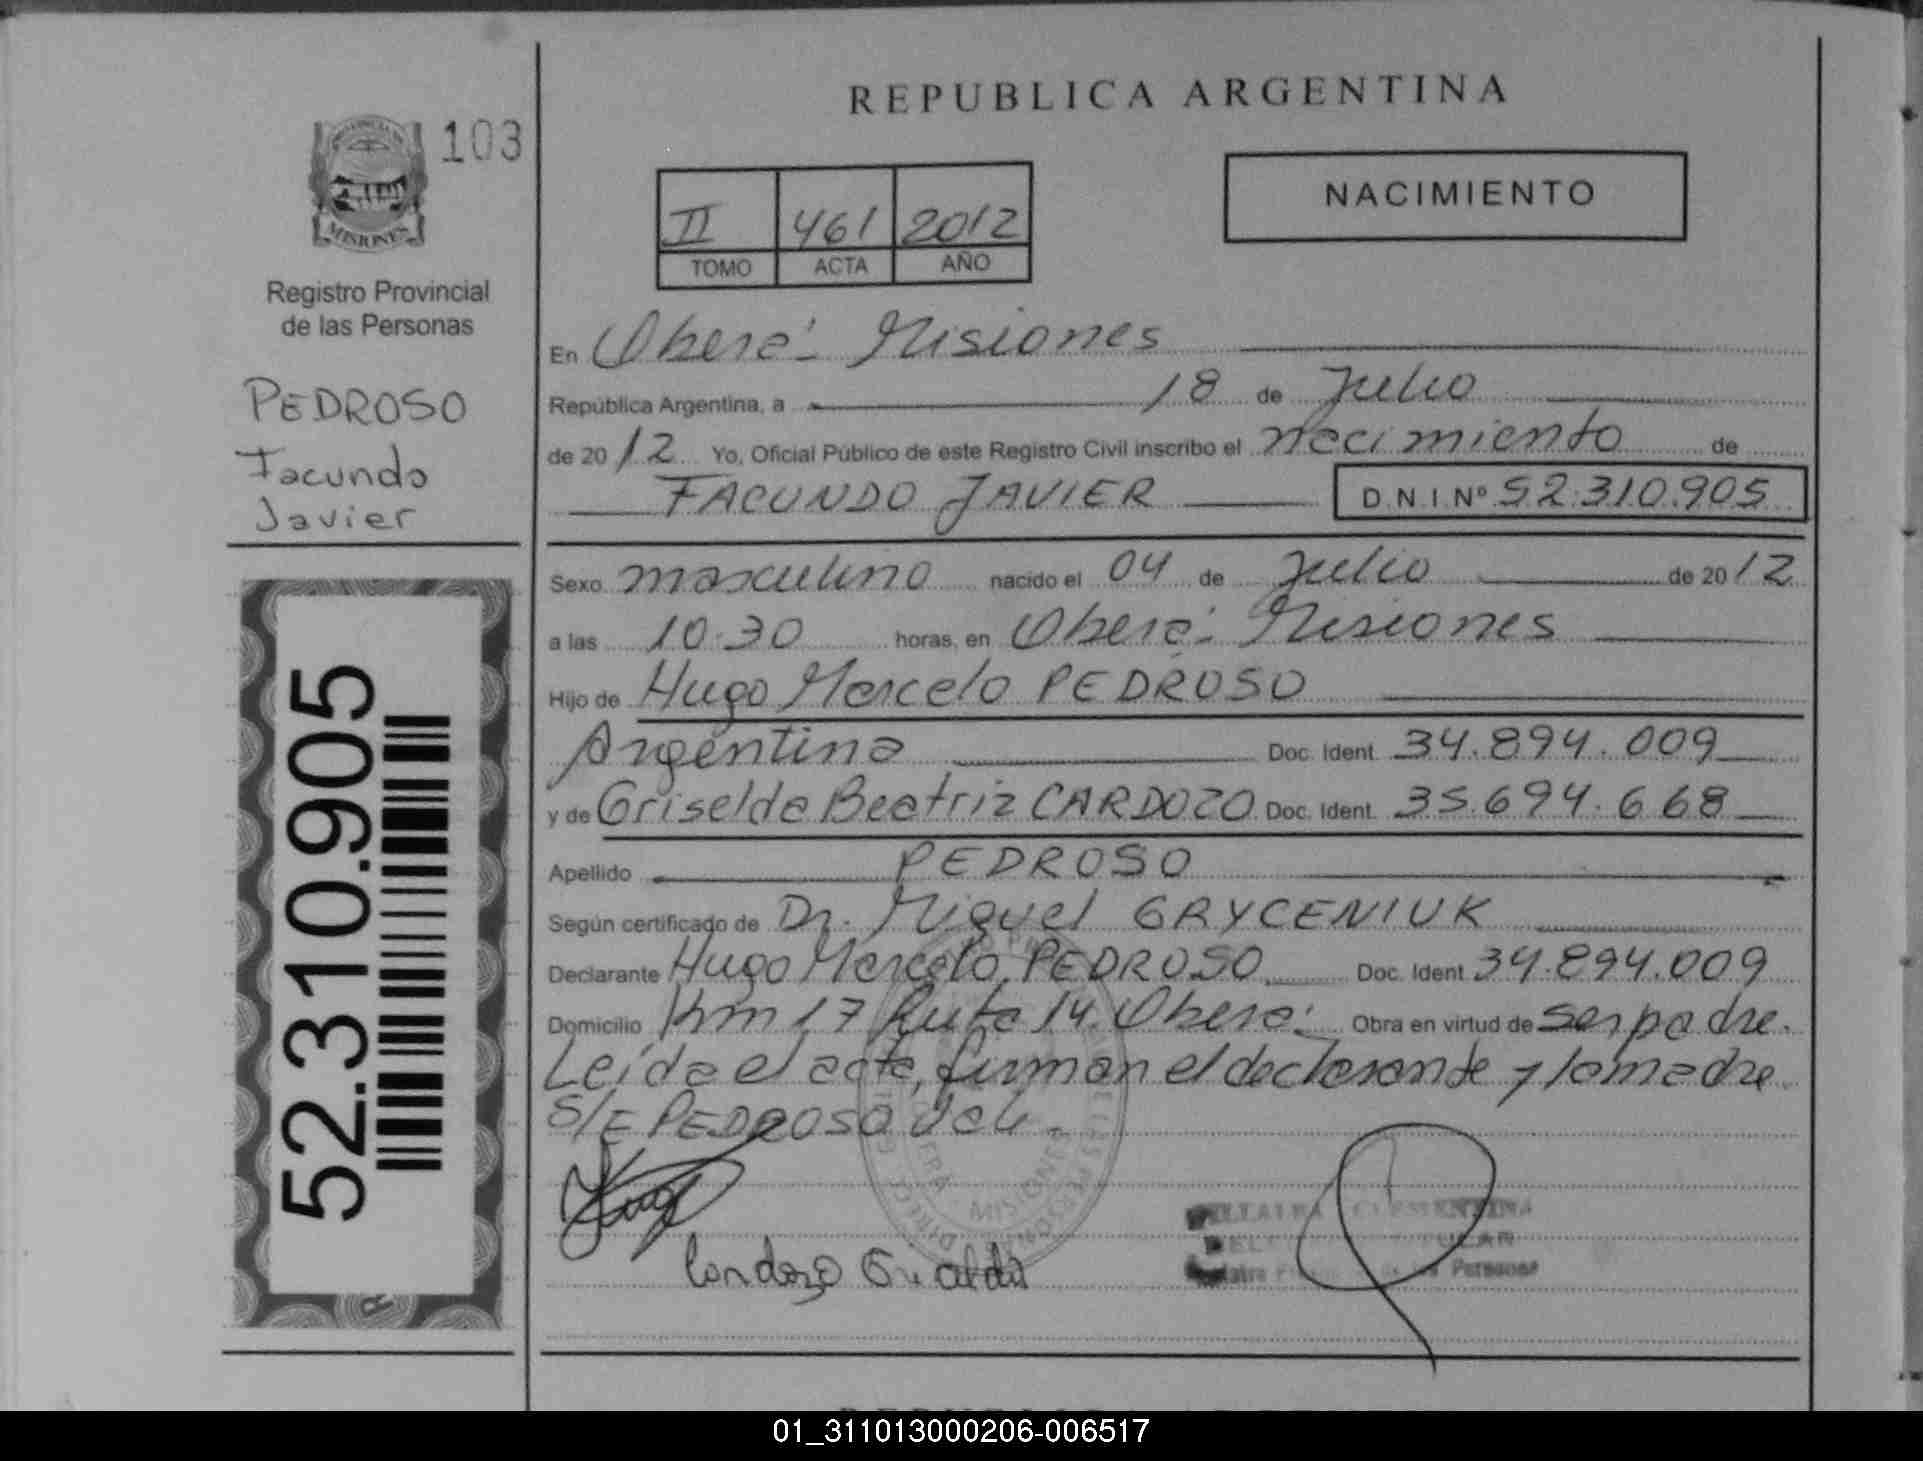 REPUBLICA ARGENTINA
103
MISIONES
Registro Provincial
de las Personas
PEDROSO
Facundo
Javier
52.310.905
II 461 2012
TOMO ACTA AÑO
NACIMIENTO
En Oberá - Misiones
República Argentina, a 18 de Julio
de 2012 Yo, Oficial Público de este Registro Civil inscribo el nacimiento de
FACUNDO JAVIER D.N.I. Nº 52.310.905
Sexo masculino nacido el 04 de Julio de 2012
a las 10.30 horas, en Oberá - Misiones
Hijo de Hugo Marcelo PEDROSO
Argentina Doc. Ident. 34.894.009
y de Griselda Beatriz CARDOZO Doc. Ident. 35.694.668
Apellido PEDROSO
Según certificado de Dr. Miguel GRYCENIUK
Declarante Hugo Marcelo PEDROSO Doc. Ident. 34.894.009
Domicilio Km 17 Ruta 14 Oberá - Obra en virtud de ser padre.
Leída el acta, firman el declarante y la madre
S/E PEDROSO Vale.
MISIONES
Hugo
Cardozo Griselda
CLEMENTINA
Personas
01_311013000206-006517